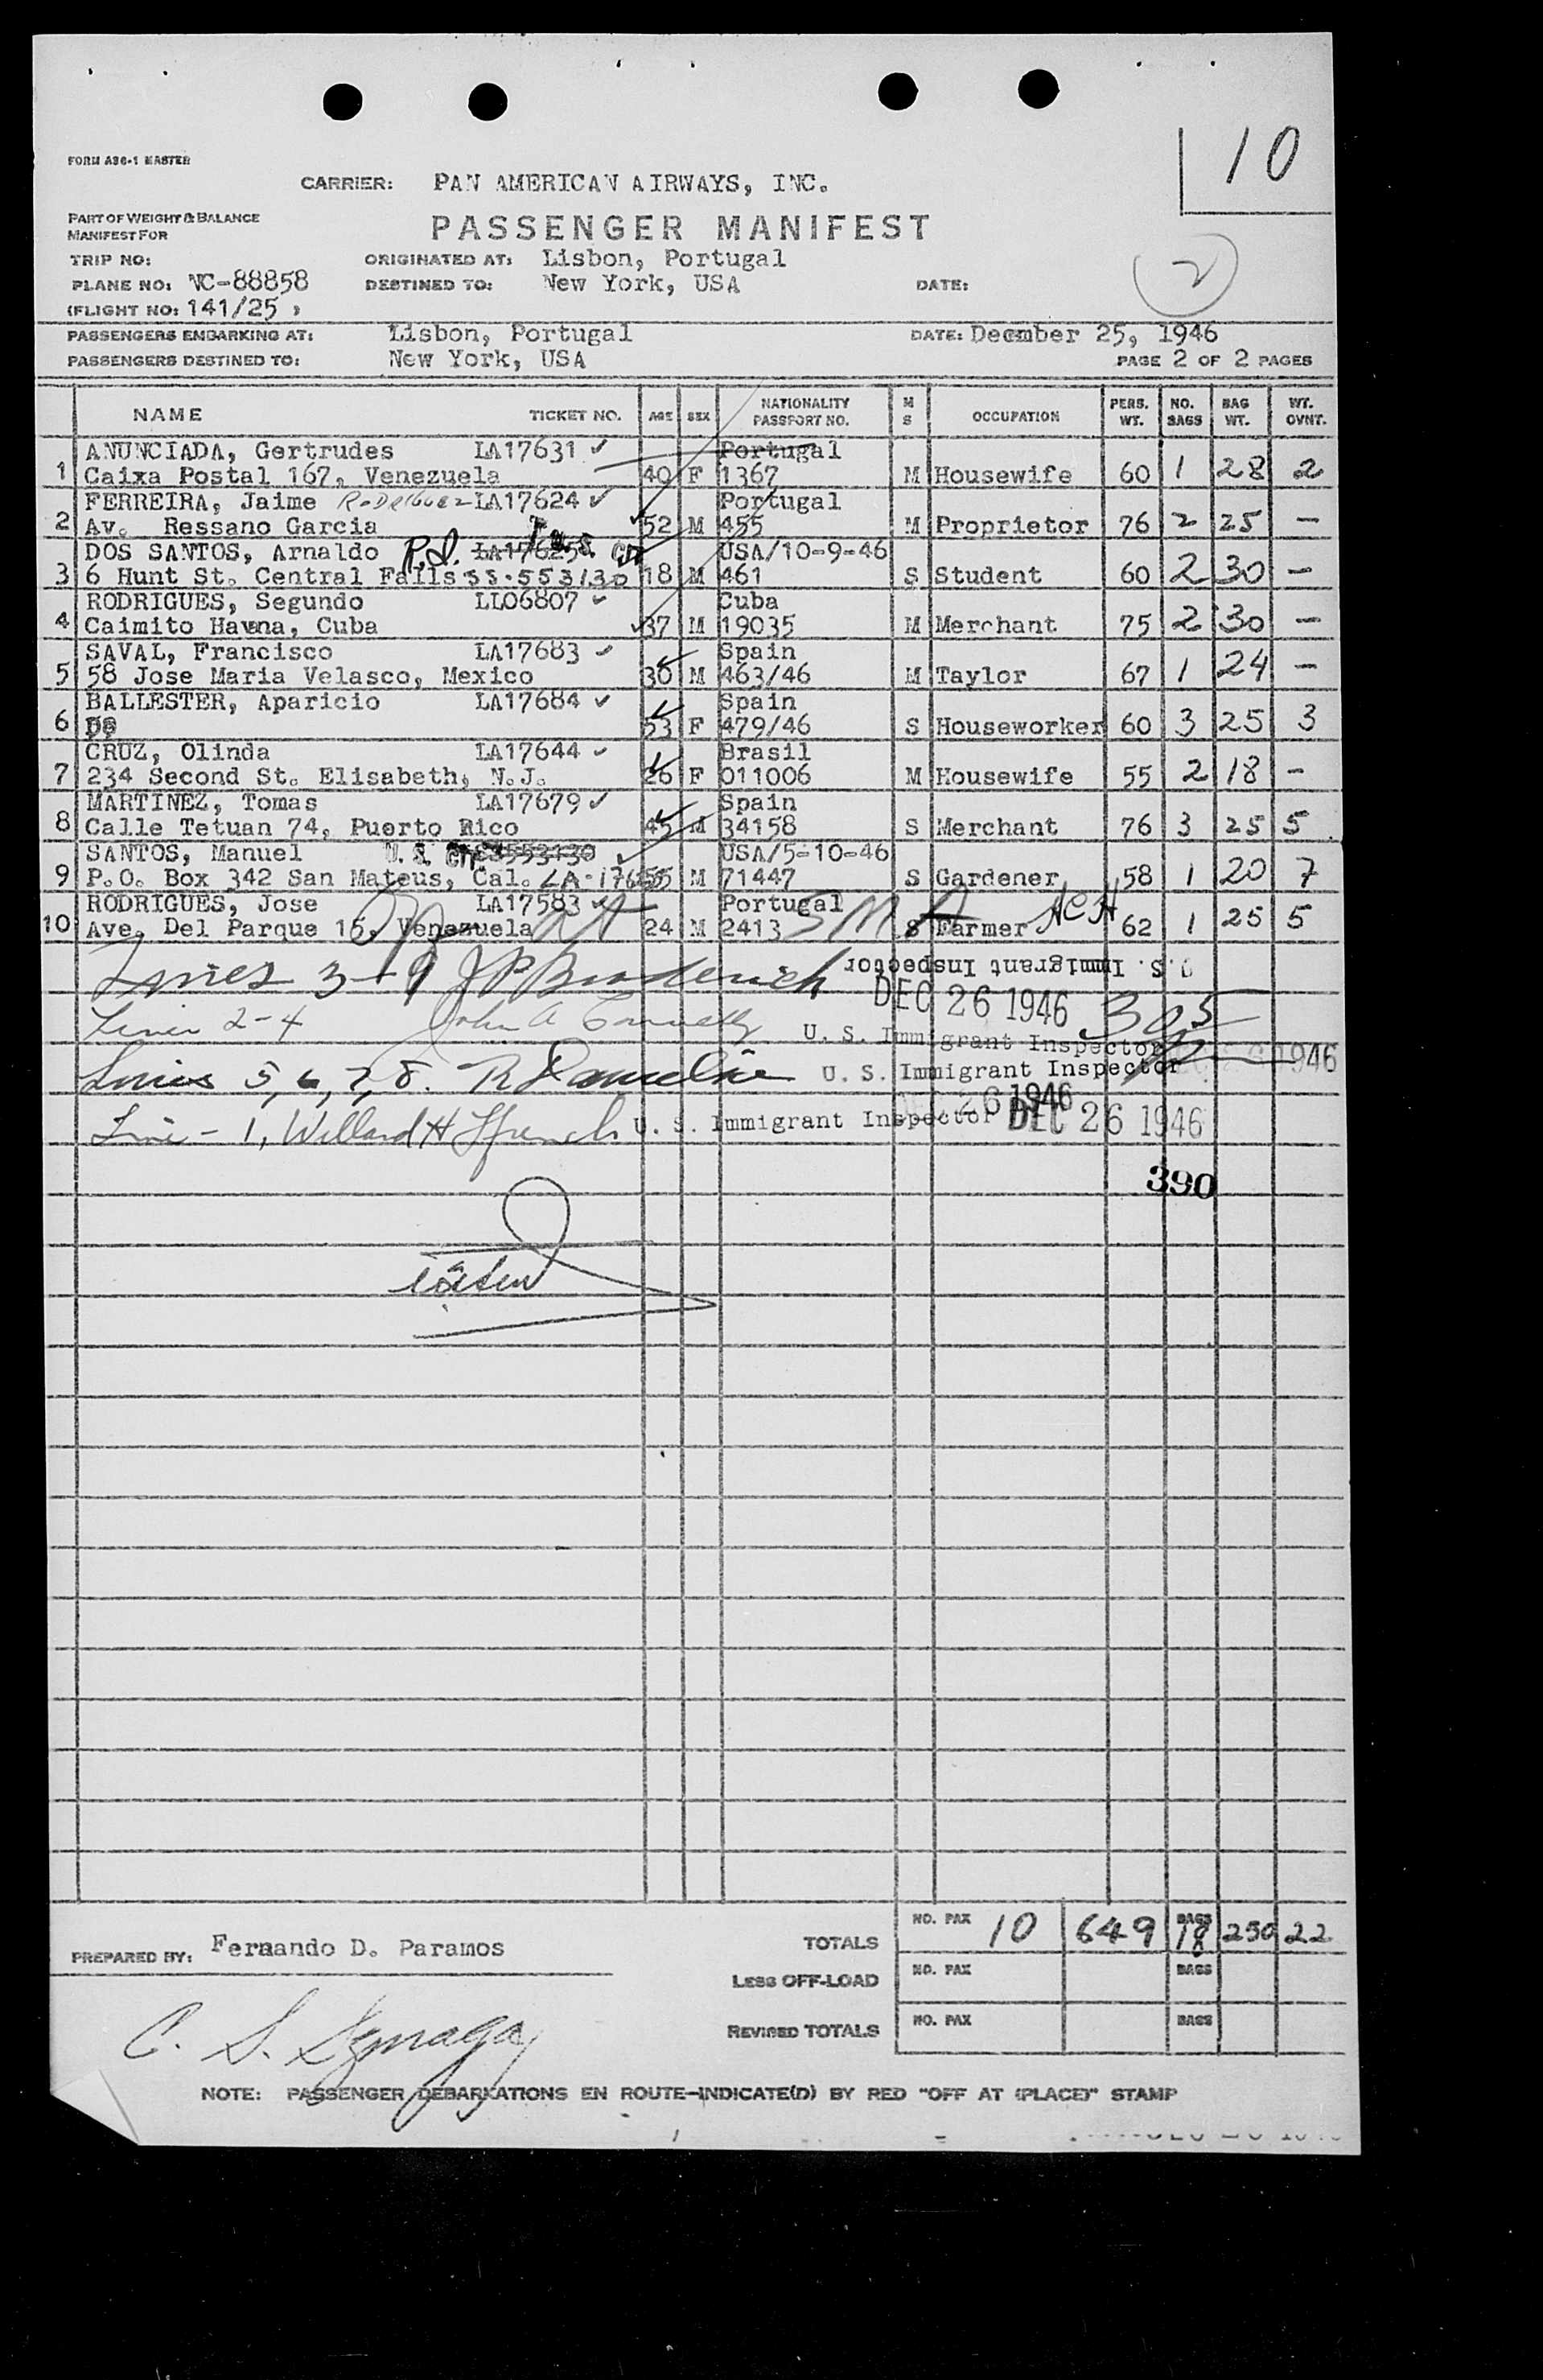 10
FORM A86-1 MASTER
CARRIER: PAN AMERICAN AIRWAYS, INC.
PART OF WEIGHT & BALANCE
MANIFEST FOR
PASSENGER MANIFEST
2
TRIP NO: ORIGINATED AT: Lisbon, Portugal
PLANE NO: NC-88858 DESTINED TO: New York, USA DATE:
(FLIGHT NO: 141/25 )
PASSENGERS EMBARKING AT: Lisbon, Portugal DATE: December 25, 1946
PASSENGERS DESTINED TO: New York, USA PAGE 2 OF 2 PAGES
NAME TICKET NO. AGE SEX NATIONALITY PASSPORT NO. M S OCCUPATION PERS. WT. NO. BAGS BAG WT. WT. OVNT.
ANUNCIADA, Gertrudes LA17631 ✓ Portugal
1 Caixa Postal 167, Venezuela 40 F 1367 M Housewife 60 1 28 2
FERREIRA, Jaime RODRIGUEZ LA17624 ✓ Portugal
2 Av. Ressano Garcia 52 M 455 M Proprietor 76 2 25 —
DOS SANTOS, Arnaldo R.I. LA17625 U.S. CIT USA/10-9-46
3 6 Hunt St. Central Falls 33-553130 18 M 461 S Student 60 2 30 —
RODRIGUES, Segundo LL06807 ✓ Cuba
4 Caimito Havana, Cuba 37 M 19035 M Merchant 75 2 30 —
SAVAL, Francisco LA17683 ✓ Spain
5 58 Jose Maria Velasco, Mexico 30 M 463/46 M Taylor 67 1 24 —
BALLESTER, Aparicio LA17684 ✓ Spain
6 53 F 479/46 S Houseworker 60 3 25 3
CRUZ, Olinda LA17644 ✓ Brasil
7 234 Second St. Elisabeth, N.J. 26 F 011006 M Housewife 55 2 18 -
MARTINEZ, Tomas LA17679 ✓ Spain
8 Calle Tetuan 74, Puerto Rico 45 M 34158 S Merchant 76 3 25 5
SANTOS, Manuel U.S. CIT 33553130 USA/5-10-46
9 P.O. Box 342 San Mateus, Cal. LA-17625 55 M 71447 S Gardener 58 1 20 7
RODRIGUES, Jose LA17583 ✓ Portugal
10 Ave. Del Parque 15, Venezuela 24 M 2413 S Farmer ACH 62 1 25 5
Lines 3-9 J P Broderick U.S. Immigrant Inspector
DEC 26 1946 305
Lines 2-4 John A Connelly U. S. Immigrant Inspector
1946
Lines 5, 6, 7, 8. U. S. Immigrant Inspector
26 1946
Line - 1, Willard H Ffrench U. S. Immigrant Inspector DEC 26 1946
390
PREPARED BY: Fernando D. Paramos
TOTALS NO. PAX 10 649 BAGS 18 250 22
LESS OFF-LOAD NO. PAX BAGS
REVISED TOTALS NO. PAX BAGS
C. S.
NOTE: PASSENGER DEBARKATIONS EN ROUTE—INDICATE(D) BY RED "OFF AT (PLACE)" STAMP